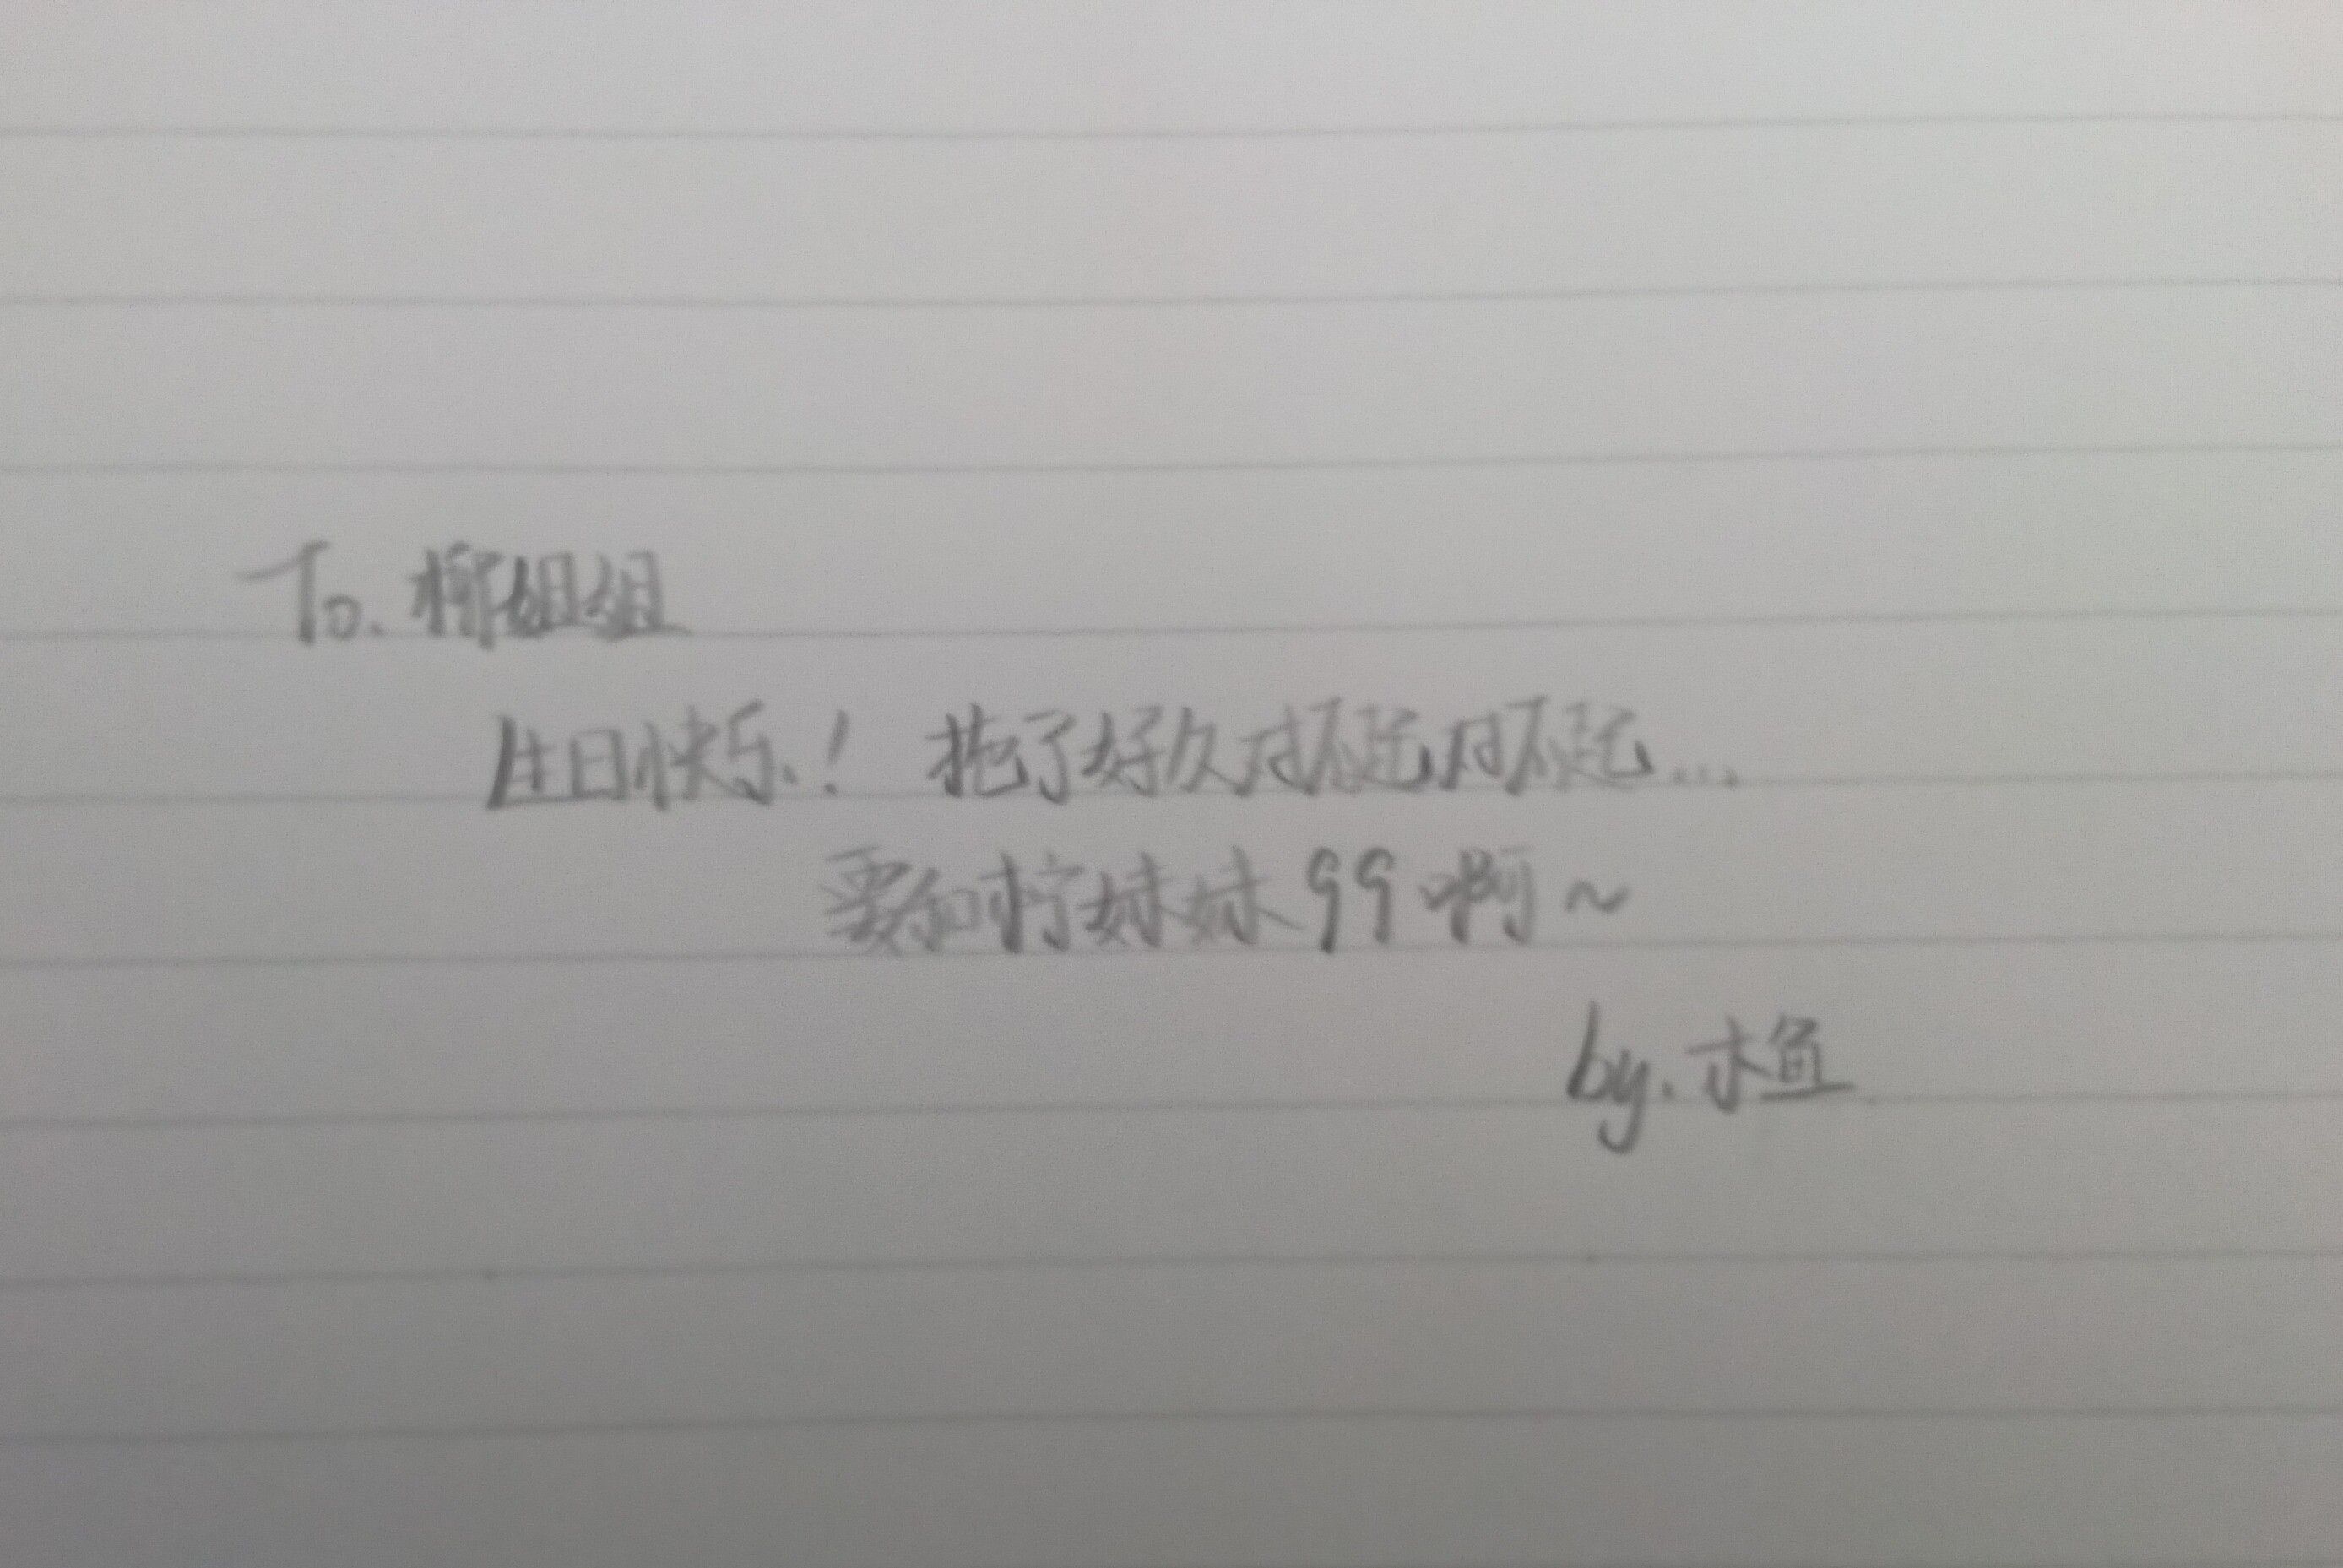 To. 柳姐姐
生日快乐！ 拖了好久对不起对不起...
要和柠妹妹99啊~
by. 木鱼